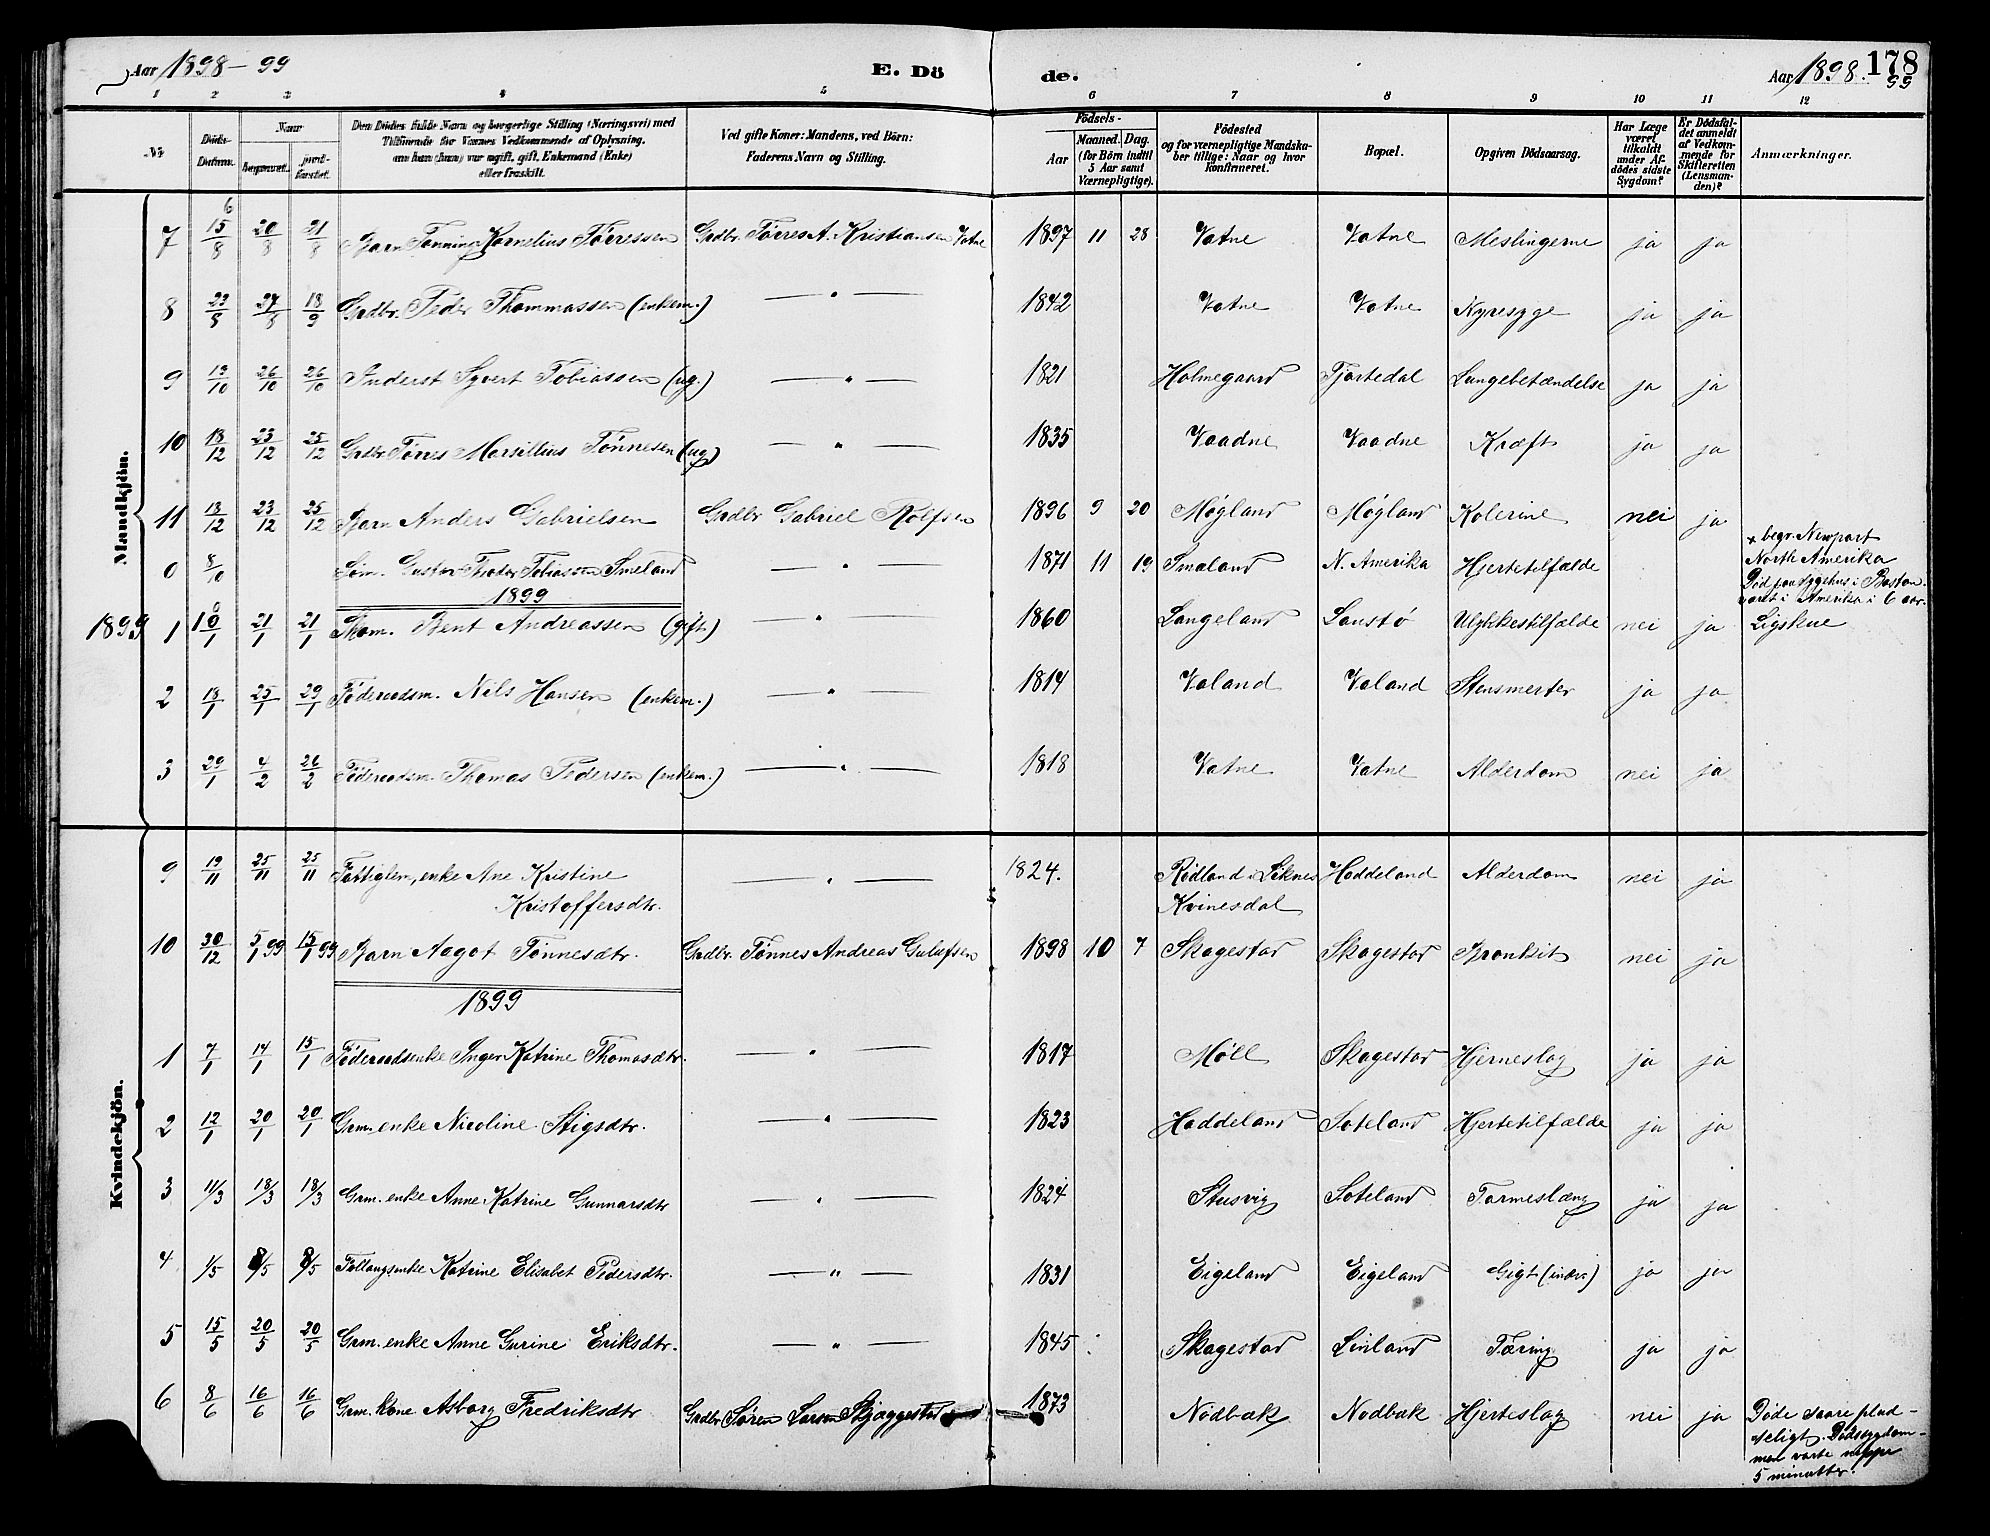 Aar 1898-99
E. Dö
de.
Aar 1898. 99
178
1 2 3 4 5 6 7 8 9 10 11 12
Nr.
Döds-Datum.
Naar
begravet.
jord-fæstet.
Den Dödes fulde Navn og borgerlige Stilling (Næringsvei) med
Tilföiende for Voxnes Vedkommende af Oplysning,
om han (hun) var ugift, gift, Enkemand (Enke)
eller fraskilt.
Ved gifte Koner: Mandens, ved Börn:
Faderens Navn og Stilling.
Födsels-
Aar
Maaned. Dag.
(for Börn indtil
5 Aar samt
Værnepligtige).
Födested
og for værnepligtige Mandska-
ber tillige: Naar og hvor
konfirmeret.
Bopæl.
Opgiven Dödsaarsag.
Har Læge
været
tilkaldt
under Af-
dödes sidste
Sygdom?
Er Dödsfal-
det anmeldt
af Vedkom-
mende for
Skifteretten
(Lensman-
den)?
Anmærkninger.
Mandkjön.
7 15/8 20/8 21/8 Barn Tønning Kornelius Tørressen Grdbr. Tørres A. Kristiansen Vatne 1897 11 28 Vatne Vatne Meslingerne ja ja
8 23/8 27/8 18/9 Grdbr. Peder Thommassen (enkem.) — " — 1842 Vatne Vatne Nyresyge ja ja
9 13/10 26/10 26/10 Inderst Syvert Tobiassen (ug.) — " — 1821 Holmegaard Fjortedal Lungebetændelse ja ja
10 18/12 23/12 25/12 Grdbr. Tørres Marsillius Tønnesen (ug.) — " — 1835 Vaadne Vaadne Kræft ja ja
11 13/12 23/12 25/12 Barn Anders Gabrielsen Grdbr Gabriel Rolfsen 1896 9 20 Møgland Møgland Kolerine nei ja
0 8/10 Søm. Gustav Theodor Tobiassen Smeland — " — 1871 11 19 Smaland N. Amerika Hjertetilfælde
+ begr. Newport
North Amerika
Död paa sygehus i Boston.
været i Amerika i 6 aar.
1899
1899 1 10/1 21/1 21/1 Thom. Bent Andreassen (gift) — " — 1860 Langeland Lanstø Ulykkestilfælde nei ja Ligskue
2 18/1 25/1 29/1 Föderaadsm. Nils Hansen (enkem.) — " — 1814 Valand Valand Stensmerter ja ja
3 29/1 4/2 26/2 Föderaadsm. Thomas Pedersen (enkem.) — " — 1818 Vatne Vatne Alderdom nei ja
Kvindekjön.
9 19/11 25/11 25/11 Fattiglem, enke Ane Kristine — " — 1824. Rødland i Liknes Hoddeland Alderdom nei ja
Kristoffersdtr. Kvinesdal
10 30/12 5/1 99 15/1 99 Barn Aagot Tønnesdtr. Grdbr. Tønnes Andreas Gulufsen 1898 10 7 Skagestad Skagestad Bronkit nei ja
1899
1 7/1 14/1 15/1 Föderaadsenke Inger Katrine Thomasdtr. — " — 1817 Møll Skagestad Hjerneslag ja ja
2 12/1 20/1 20/1 Grm. enke Nicoline Stigsdtr. — " — 1823 Haddeland Soteland Hjertetilfælde ja ja
3 11/3 18/3 18/3 Grm. enke Anne Katrine Gunnarsdtr — " — 1824 Stusvig Soteland Tarmeslæng ja ja
4 1/5 8/5 8/5 Follaugsenke Katrine Elisabet Pedersdtr. — " — 1831 Eigeland Eigeland Gigt (indv.) ja ja
5 15/5 20/5 20/5 Grm. enke Anne Gurine Eriksdtr. — " — 1845 Skagestad Linland Tæring ja ja
6 8/6 16/6 16/6 Grm. kone Asborg Fredriksdtr Grdbr Søren Larsen Skjæggestad 1873 Nödbæk Nodbæk Hjerteslag nei ja
Döde saare plud-
seligt. Dödssygdom-
men varte neppe
5 minutter.